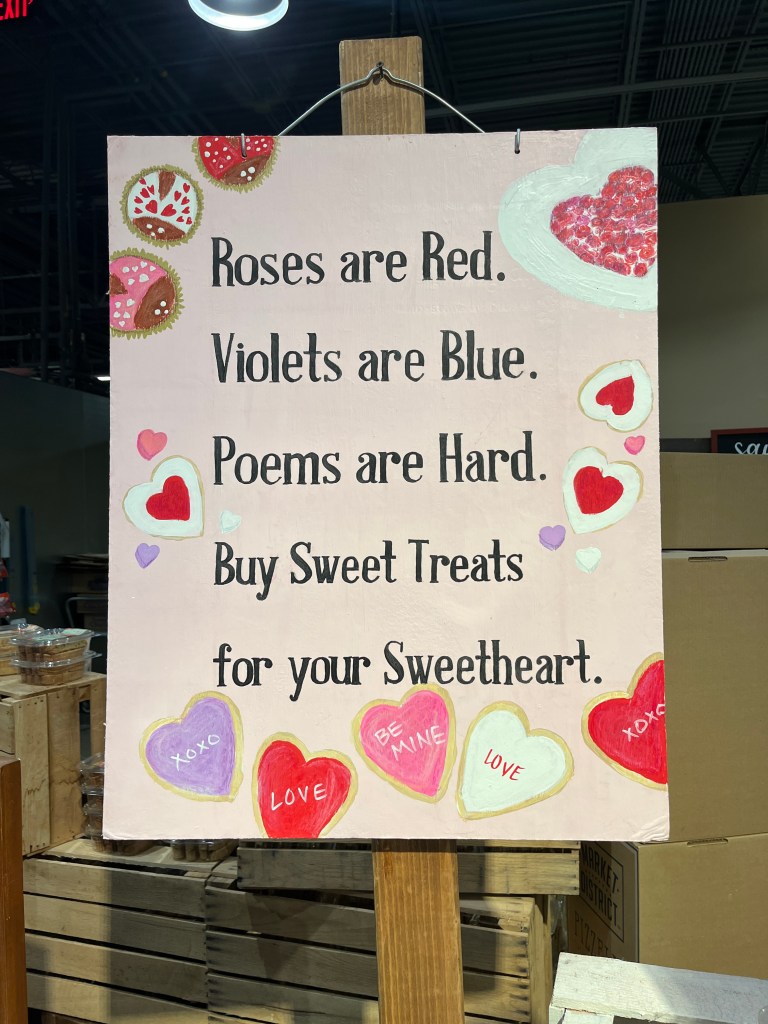 EXIT
Roses are Red.
Violets are Blue.
Poems are Hard.
Buy Sweet Treats
for your Sweetheart.
XOXO
LOVE
BE
MINE
LOVE
XOXO
MARKET
DISTRICT